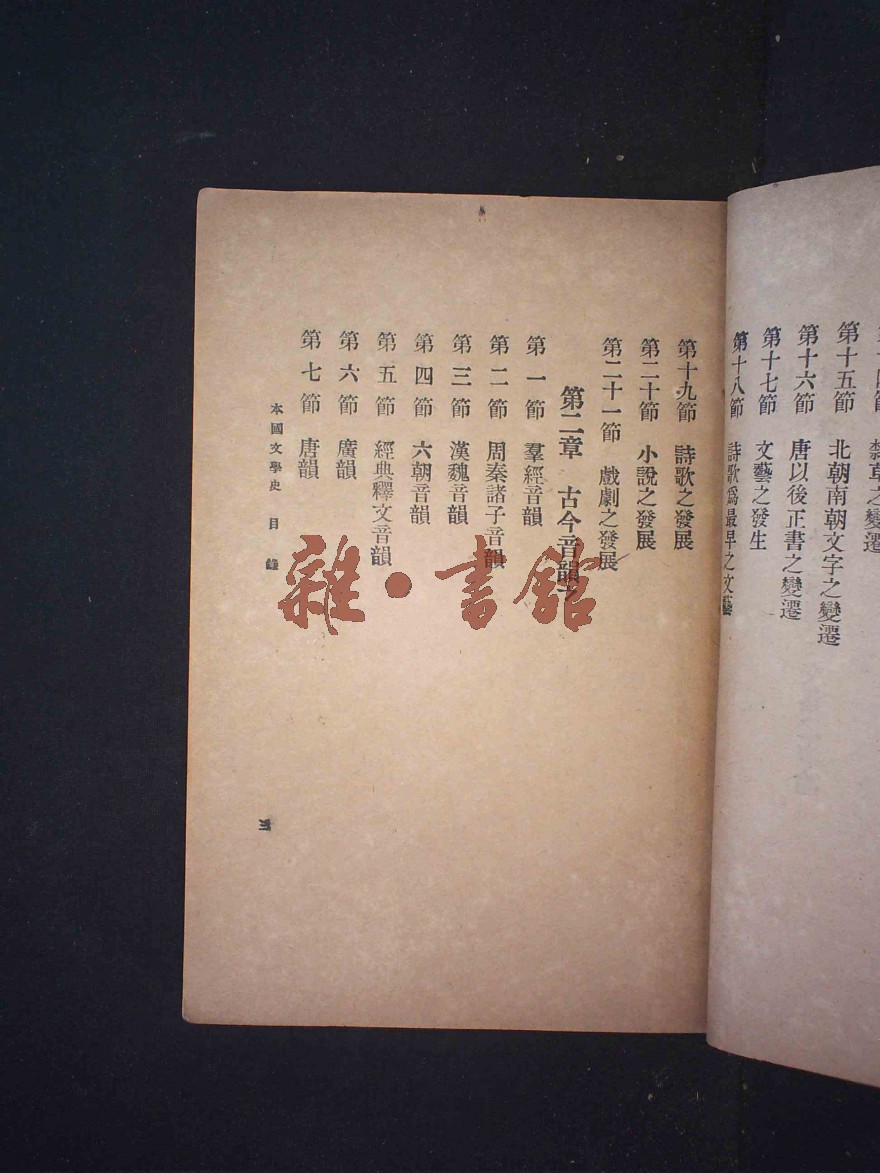 第十五節 北朝南朝文字之變遷
第十六節 唐以後正書之變遷
第十七節 文藝之發生
第十八節 詩歌爲最早之文藝
第十九節 詩歌之發展
第二十節 小說之發展
第二十一節 戲劇之發展
第二章 古今音韻
第一節 羣經音韻
第二節 周秦諸子音韻
第三節 漢魏音韻
第四節 六朝音韻
第五節 經典釋文音韻
第六節 廣韻
第七節 唐韻
本國文學史 目錄
雜·書館